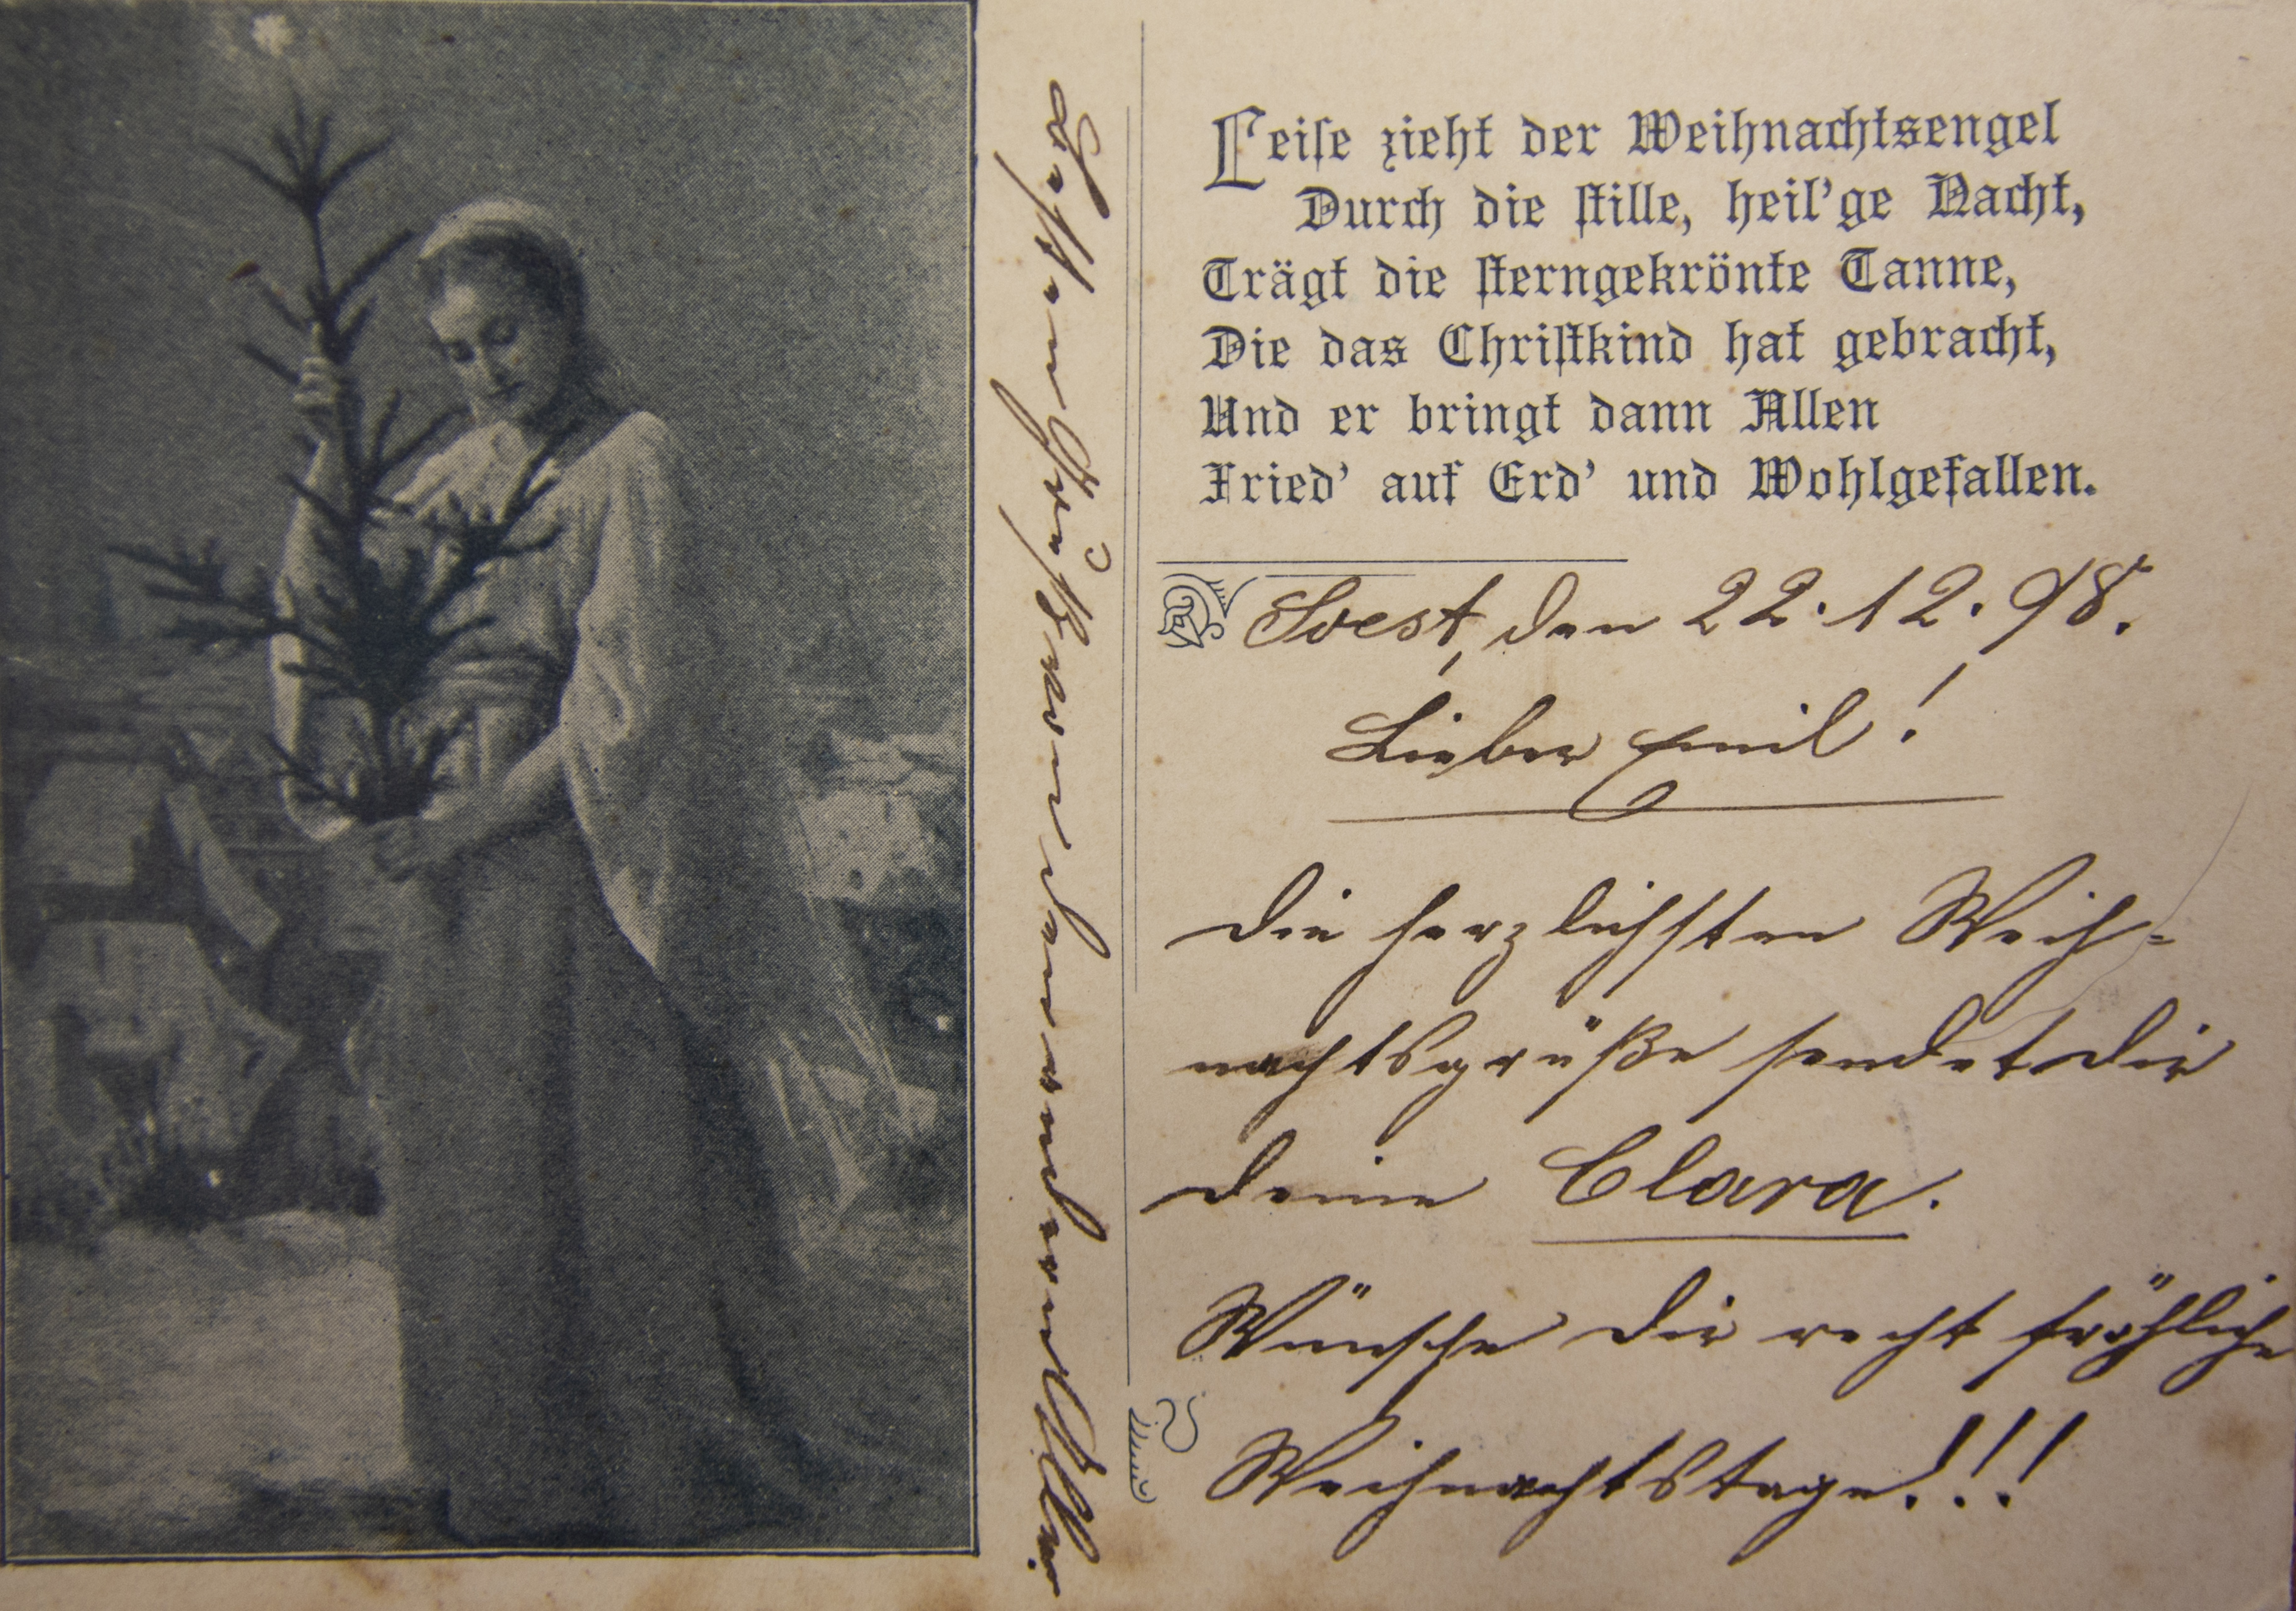 Leiſe zieht der Weihnachtsengel
Durch die ſtille, heil'ge Nacht,
Trägt die ſterngekrönte Tanne,
Die das Chriſtkind hat gebracht,
Und er bringt dann Allen
Fried' auf Erd' und Wohlgefallen.
Soest, den 22.12.98.
Lieber Emil!
Die herzlichsten Weih-
nachtsgrüße sendet dir
deine Clara.
Wünsche dir recht fröhliche
Weihnachtstage!!!
Besten Gruß von